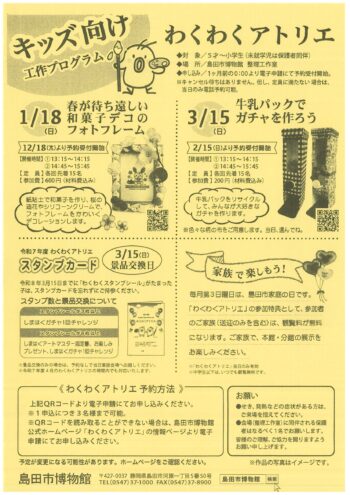 キッズ向け
工作プログラム
わくわくアトリエ
◆対 象／5才～小学生(未就学児は保護者同伴)
◆場 所／島田市博物館 整理工作室
◆申し込み／1ヶ月前の9:00より電子申請にて予約受付開始。
※キャンセル待ちはありません。但し、定員に満たない場合は、
当日のみ電話予約可能。
1/18
(日)
春が待ち遠しい
和菓子デコの
フォトフレーム
12/18(木)より予約受付開始
【開催時間】① 13:15～14:15
② 14:45～15:45
【定員】各回先着15名
【参加費】600円(材料費込み)
紙粘土で和菓子を作り、桜の
造花やシリコーンクリームで、
フォトフレームをかわいく
デコレーションします。
3/15
(日)
牛乳パックで
ガチャを作ろう
2/15(日)より予約受付開始
【開催時間】① 13:15～14:15
② 14:45～15:45
【定員】各回先着15名
【参加費】200円(材料費込み)
牛乳パックをリサイクル
して、みんなが大好きな
ガチャを作ります。
※色々な柄の布をご用意します。当日、選んでね。
令和7年度 わくわくアトリエ
スタンプカード
3/15(日)
景品交換日
令和8年3月15日までに「わくわくスタンプシール」がたまった
子は、スタンプカードを忘れずにご持参ください。
スタンプ数と景品交換について
しまはくガチャ1回チャレンジ
しまはくアートマスター認定書、お楽しみ
プレゼント、しまはくガチャ1回チャレンジ
家族で楽しもう!
毎月第3日曜日は、島田市家庭の日です。
「わくわくアトリエ」の参加特典として、参加者
のご家族(送迎のみを含む)は、観覧料が無料
になります。ご家族で、本館・分館の展示を
お楽しみください。
《わくわくアトリエ 予約方法》
上記QRコードより電子申請にてお申し込みください。
※1申込につき3名様まで可能。
※QRコードを読み取ることができない場合は、島田市博物館
公式ホームページ「わくわくアトリエ」の情報ページより電子
申請にてお申し込みください。
お願い
●せき、発熱などの症状がある方は、
ご来場を控えてください。
●会場(整理工作室)に同伴される保護
者はなるべく1名でお願いします。
皆様のご理解、ご協力を賜りますよう
お願い申し上げます。
予定が変更になる可能性があります。ホームページをご確認ください。
※作品の写真はイメージです。
島田市博物館
〒427-0037 静岡県島田市河原一丁目5番50号
TEL(0547)37-1000 FAX(0547)37-8900
島田市博物館
検索